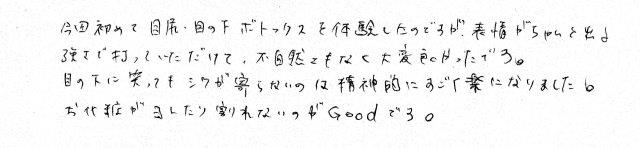 今回初めて目尻・目の下ボトックスを体験したのですが、表情がちゃんと出る
強さで打っていただけて、不自然さもなく大変良かったです。
目の下に笑ってもシワが寄らないのは精神的にすごく楽になりました。
お化粧がヨレたり割れないのがGoodです。